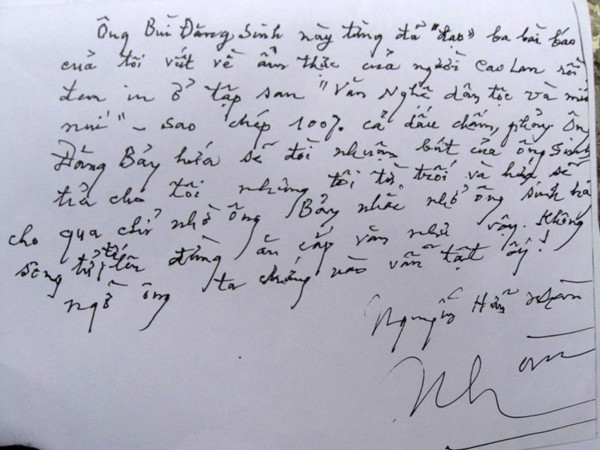 Ông Bùi Đăng Sinh này từng đã "đạo" ba bài báo
của tôi viết về ẩm thực của người Cao Lan rồi
đem in ở tập san "Văn Nghệ dân tộc và miền
núi" - sao chép 100% cả dấu chấm, phẩy Ông
Đăng Bảy hứa sẽ đòi nhuận bút của ông Sinh
trả cho tôi nhưng tôi từ trối và hứa sẽ
cho qua chỉ nhờ ông Bảy nhắc nhở ông Sinh
đừng ăn cắp văn như vậy. Không
ngờ ông ta chứng nào vẫn tật ấy!
Nguyễn Hữu Nhàn
Nhàn